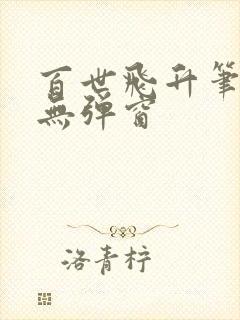 百世飛升筆
無彈窗
洛青梓